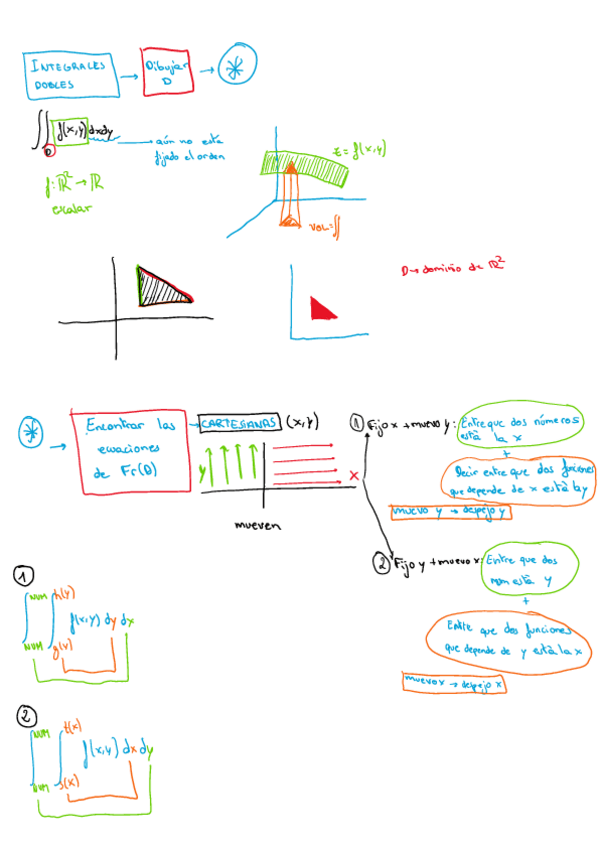 INTEGRALES
DOBLES
Dibujar
D
*
∬ f(x,y) dxdy
D
aún no está
fijado el orden
f: ℝ² → ℝ
escalar
z = f(x,y)
VOL=∬
D → dominio de ℝ²
*
Encontrar las
ecuaciones
de Fr(D)
CARTESIANAS (x,y)
y
x
mueven
① Fijo x + muevo y: Entre que dos números
está la x
+
Decir entre que dos funciones
que depende de x está la y
muevo y → despejo y
② Fijo y + muevo x: Entre que dos
num está y
+
Entre que dos funciones
que depende de y está la x
muevo x → despejo x
①
NUM h(y)
f(x,y) dy dx
NUM g(y)
②
NUM t(x)
f(x,y) dx dy
NUM s(x)